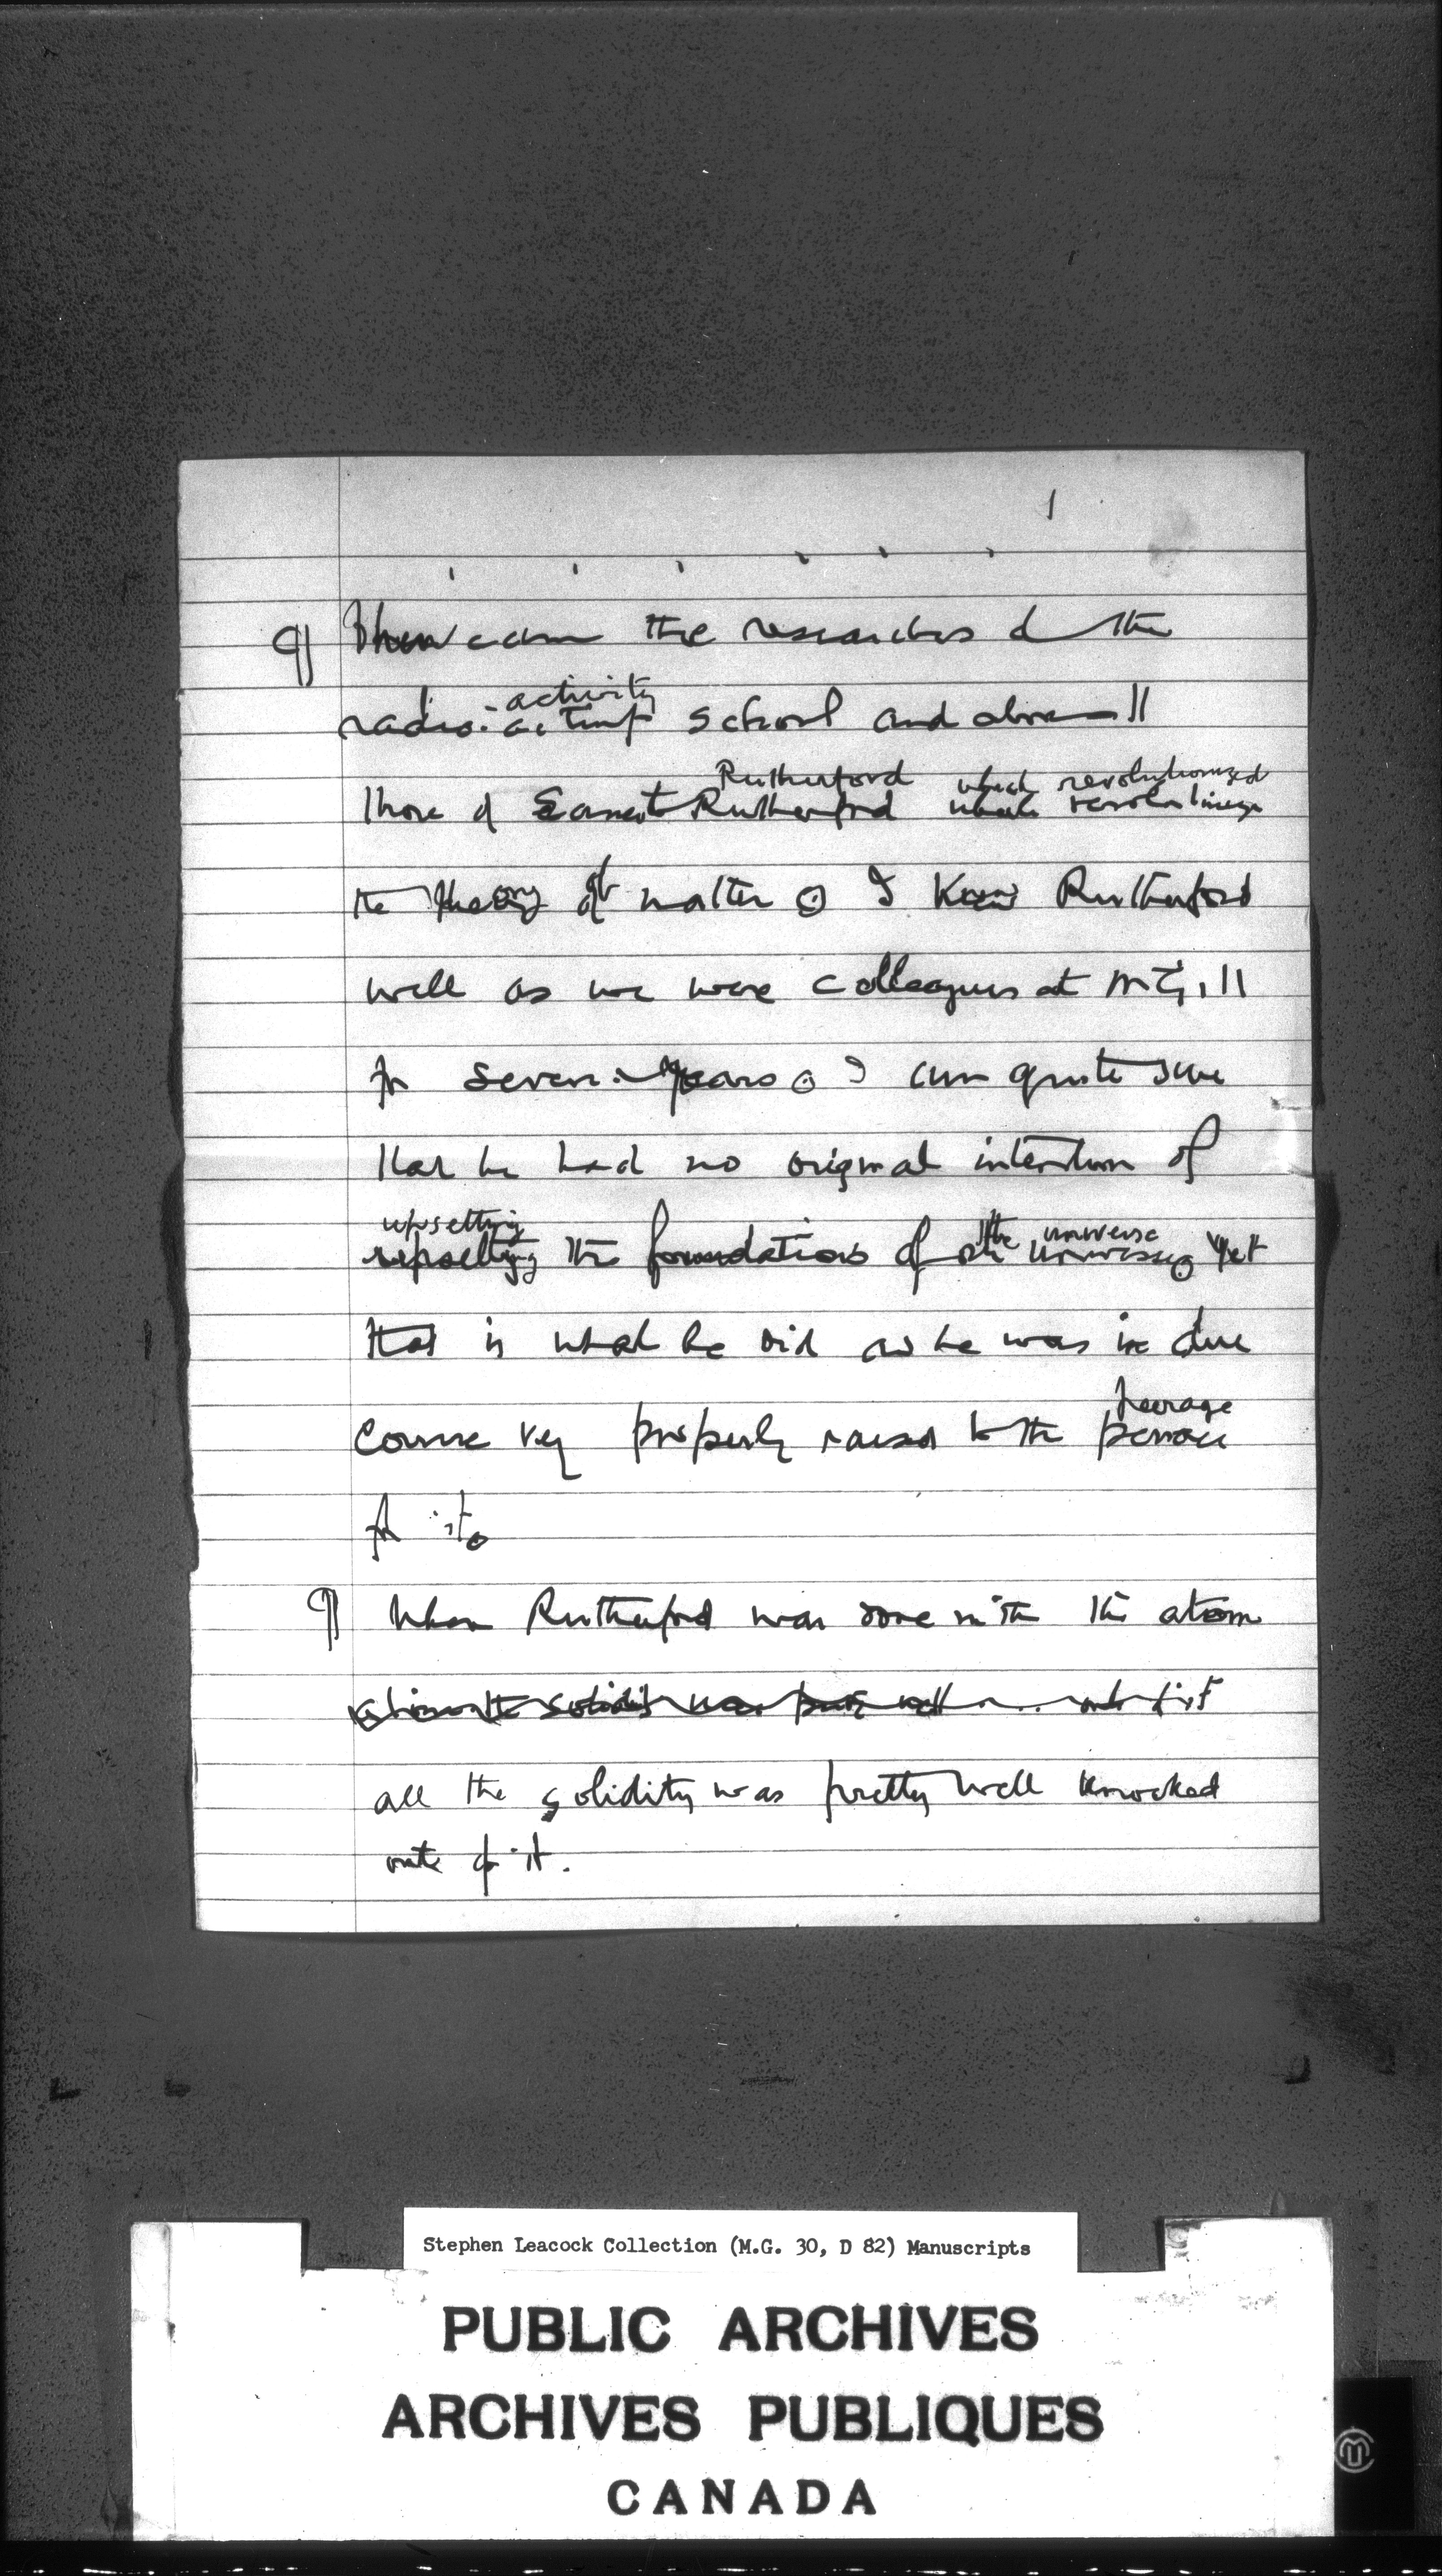 1
¶ Then came the researches of the
activity
radio-activity school and above all
Rutherford which revolutionized
those of Ernest Rutherford which
the theory of matter. I knew Rutherford
well as we were colleagues at McGill
for seven years. I am quite sure
that he had no original intention of
upsetting the universe
upsetting the foundations of the universe. Yet
that is what he did as he was in due
peerage
course very properly raised to the peerage
for it.
¶ When Rutherford was done with the atom
solidity was pretty well out of it
all the solidity was pretty well knocked
out of it.
Stephen Leacock Collection (M.G. 30, D 82) Manuscripts
PUBLIC ARCHIVES
ARCHIVES PUBLIQUES
CANADA